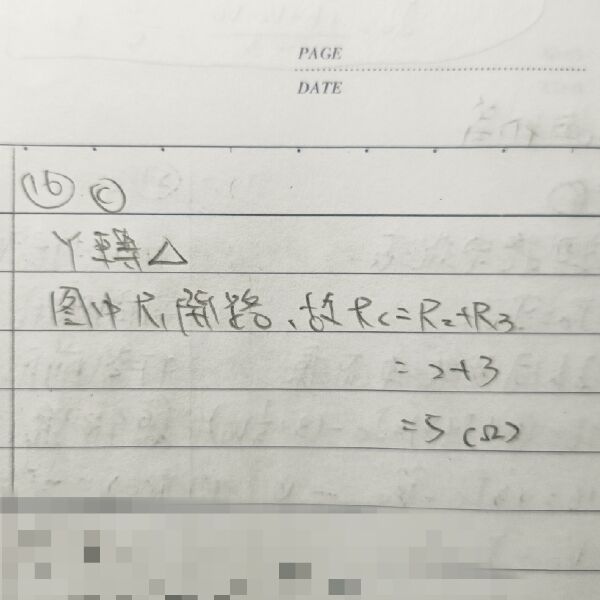 PAGE
DATE
⑯ Ⓒ
Y轉△
图中R₁開路、故Rc=R₂+R₃
=2+3
=5(Ω)